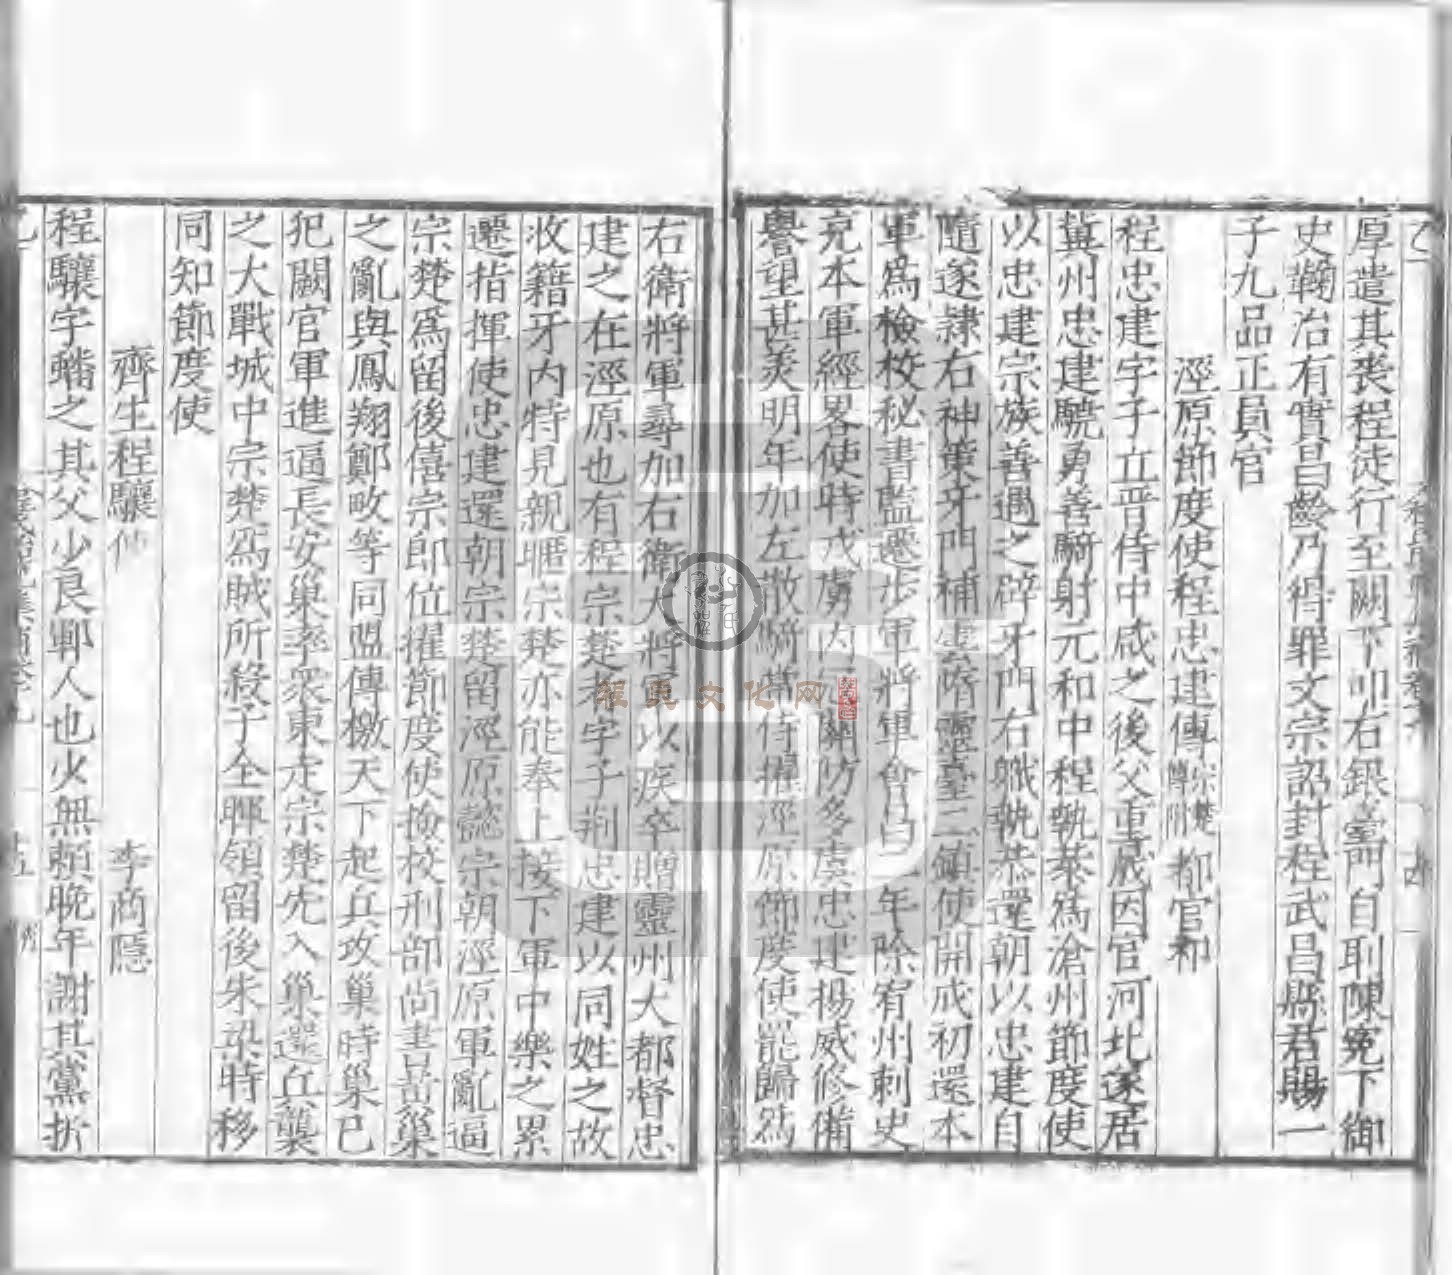 厚遣其喪程徒行至闕下叩右銀臺門自刵陳冤下御
史鞫治有實昌齡乃得罪文宗詔封程武昌縣君賜一
子九品正員官
涇原節度使程忠建傳宗楚傳附 都官郎
程忠建字子立晋侍中咸之後父重晟因官河北遂居
冀州忠建驍勇善騎射元和中程執恭為滄州節度使
以忠建宗族善遇之辟牙門右職執恭還朝以忠建自
隨遂隸右神策牙門補靈臺二鎮使開成初還本
軍為檢校秘書監遷步軍將軍會昌二年除宥州刺史
充本軍經畧使時戎虜內關防多虞忠建揚威修備
譽望甚美明年加左散騎常侍擢涇原節度使罷歸為
右衛將軍尋加右衛大將軍以疾卒贈靈州大都督忠
建之在涇原也有程宗楚者字子荆忠建以同姓之故
收籍牙內特見親暱宗楚亦能奉上接下軍中樂之累
遷指揮使忠建還朝宗楚留涇原懿宗朝涇原軍亂逼
宗楚為留後僖宗即位擢節度使檢校刑部尚書黃巢
之亂與鳳翔鄭畋等同盟傳檄天下起兵攻巢時巢已
犯闕官軍進逼長安巢率衆東走宗楚先入巢還兵襲
之大戰城中宗楚為賊所殺子全暉領留後朱梁時移
同知節度使
齊生程驤傳 李商隱
程驤字蟠之其父少良鄆人也少無賴晚年謝其黨折